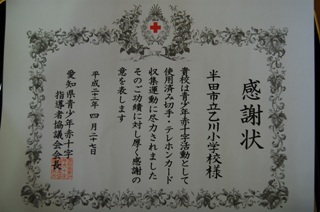 感謝状
半田市立乙川小学校様
貴校は青少年赤十字活動として
使用済み切手・テレホンカード
収集運動に尽力されました
そのご功績に対し厚く感謝の
意を表します
平成二十二年四月二十七日
愛知県青少年赤十字
指導者協議会会長